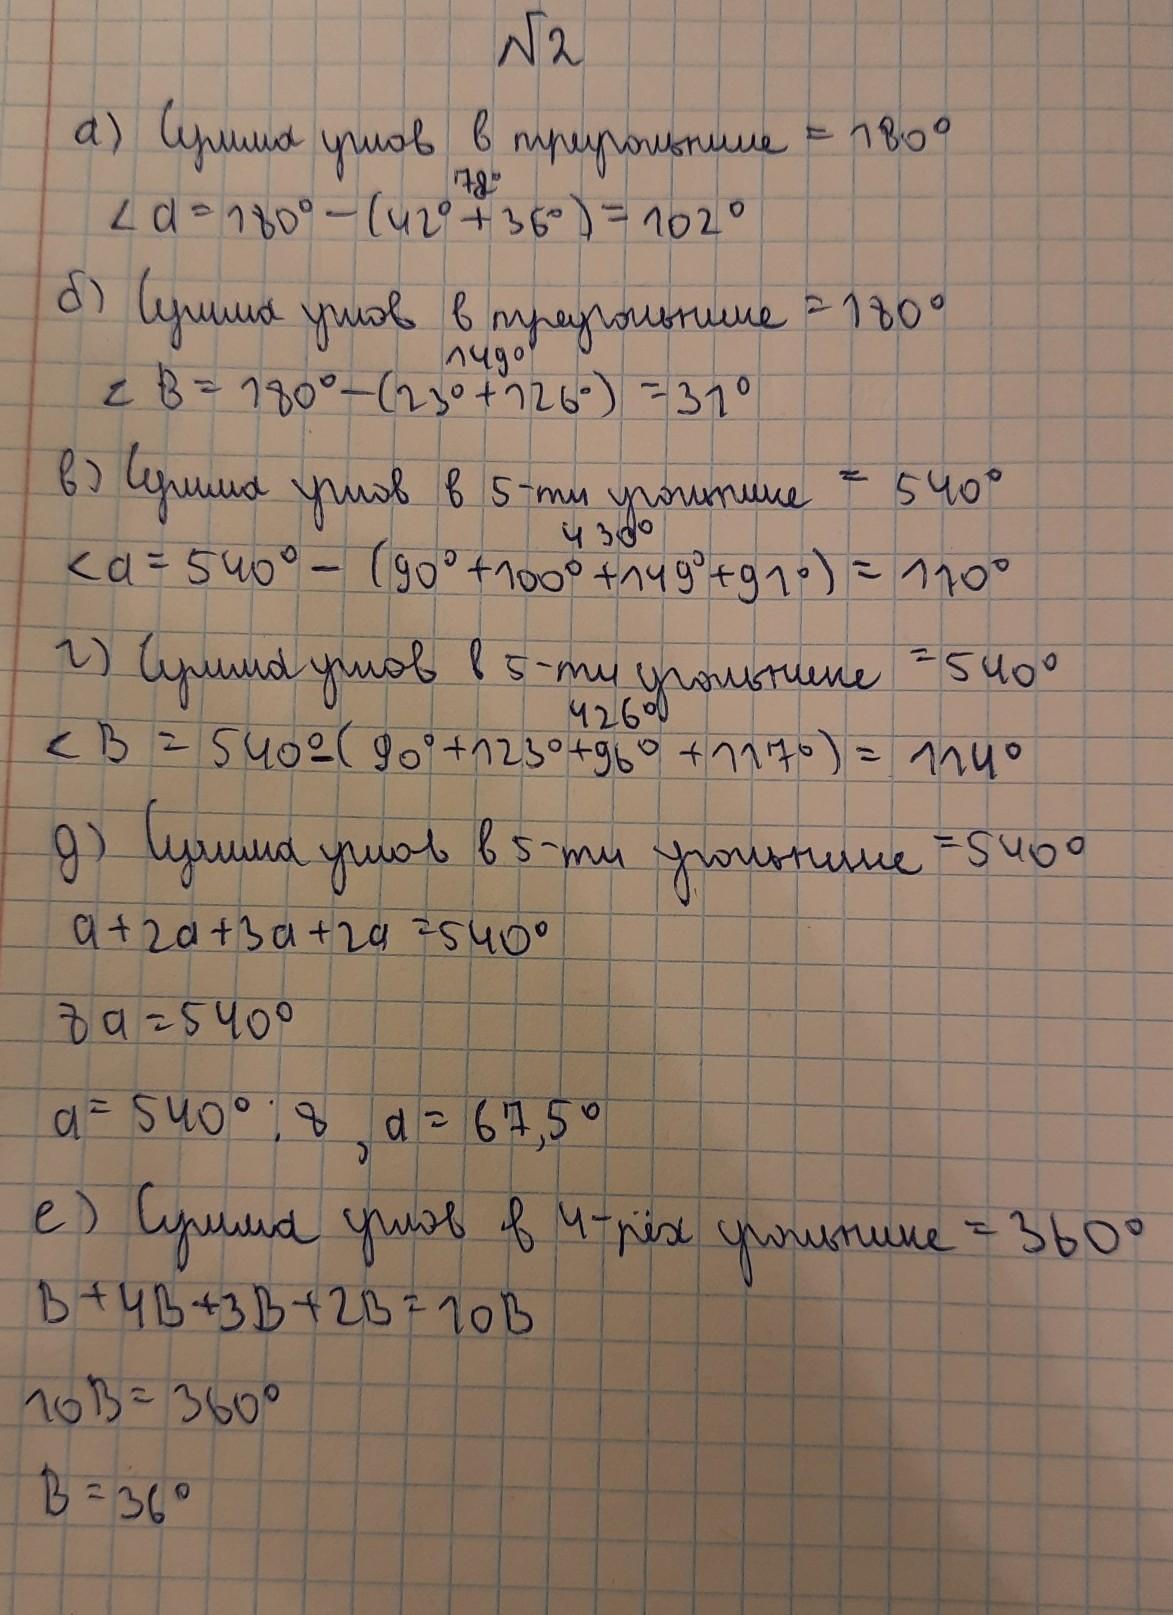 №2
а) Сумма углов в треугольнике = 180°
78°
< a = 180° - (42° + 36°) = 102°
б) Сумма углов в треугольнике = 180°
149°
< B = 180° - (23° + 126°) = 31°
в) Сумма углов в 5-ти угольнике = 540°
430°
< a = 540° - (90° + 100° + 149° + 91°) = 110°
г) Сумма углов в 5-ти угольнике = 540°
426°
< B = 540° - (90° + 123° + 96° + 117°) = 114°
д) Сумма углов в 5-ти угольнике = 540°
a + 2a + 3a + 2a = 540°
8a = 540°
a = 540° : 8, a = 67,5°
е) Сумма углов в 4-рёх угольнике = 360°
B + 4B + 3B + 2B = 10B
10B = 360°
B = 36°